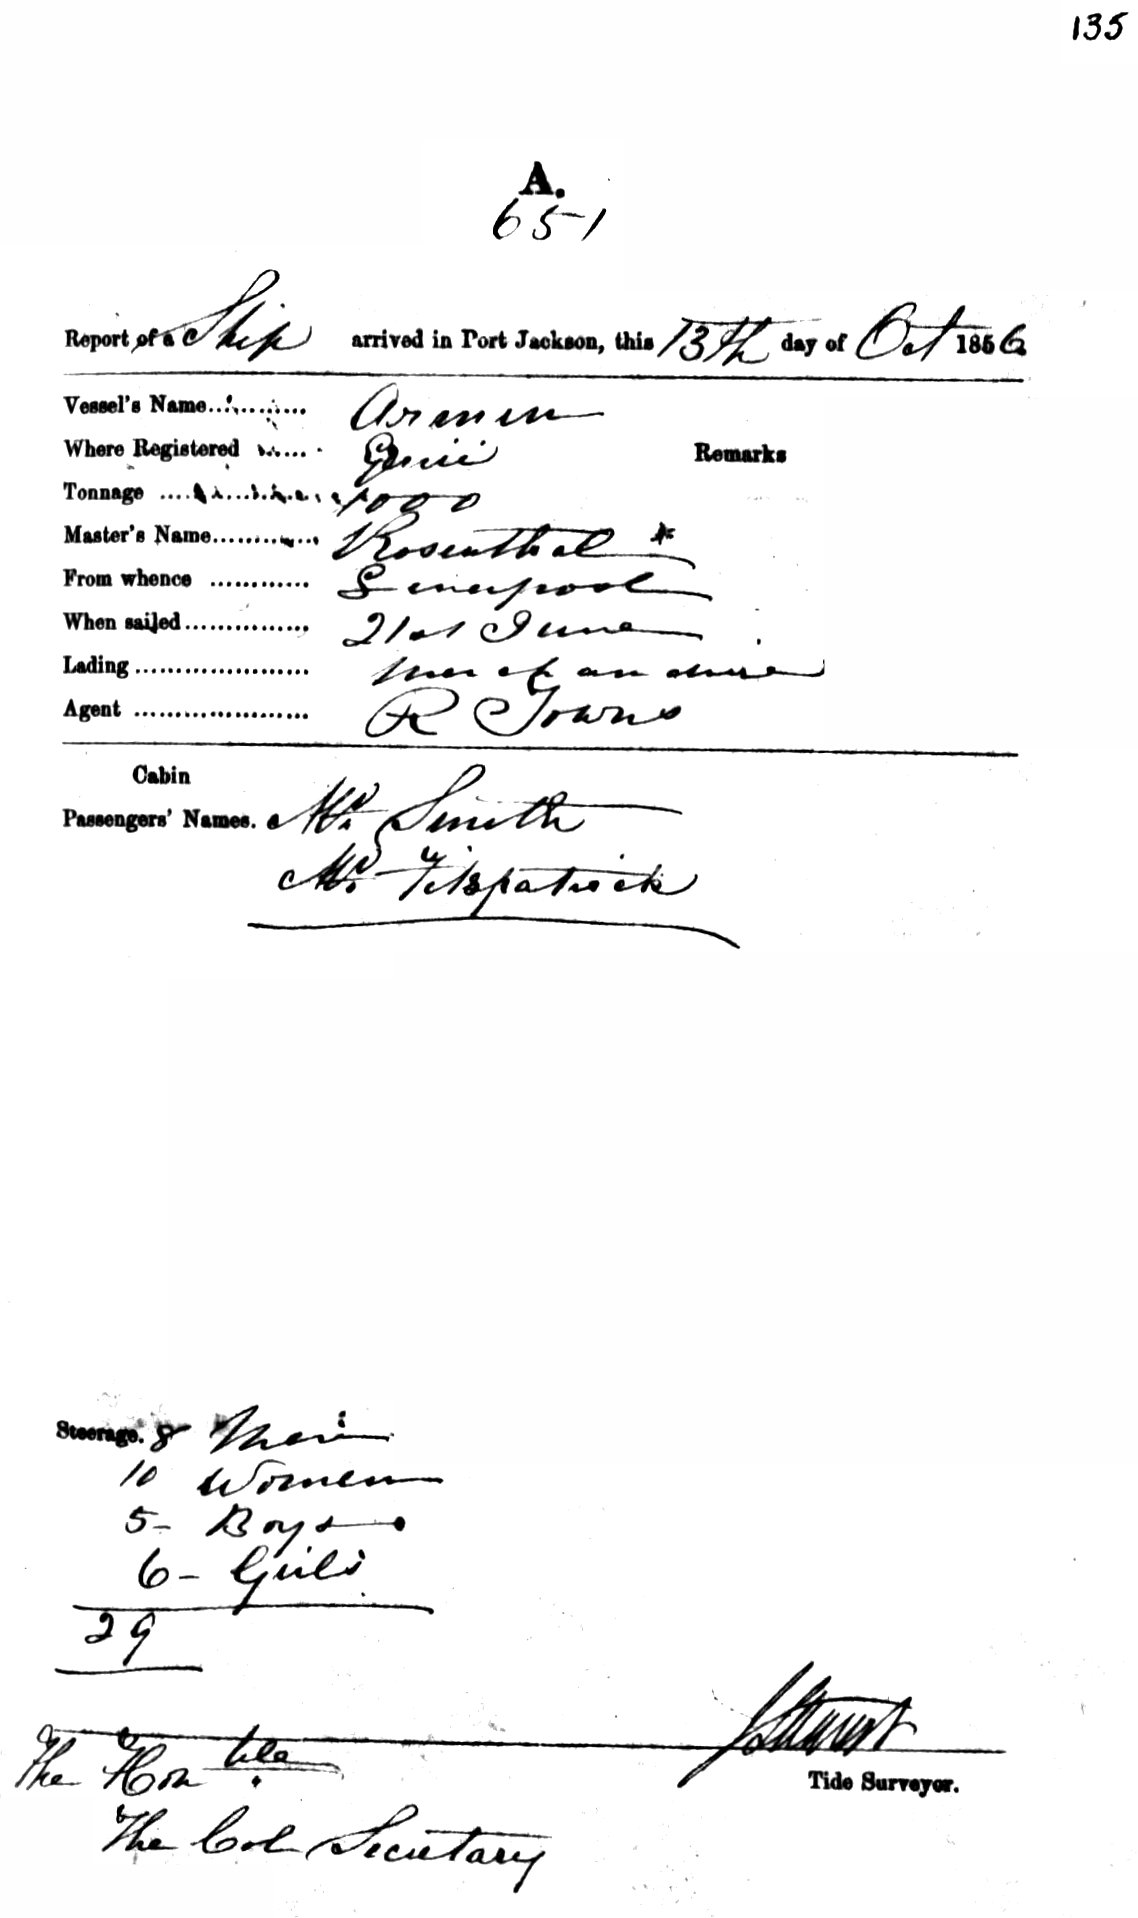 135
A.
651
Report of a Ship arrived in Port Jackson, this 13th day of Oct 1856
Vessel's Name............ Armin
Where Registered ......
Remarks
Tonnage ............ 1000
Master's Name............ Rosenthal *
From whence ............ Liverpool
When sailed............... 21st June
Lading..................... Merchandise
Agent ..................... R Towns
Cabin
Passengers' Names. Mr. Smith
Mr. Fitzpatrick
Steerage. 8 Men
10 Women
5 - Boys
6 - Girls
29
Tide Surveyor.
The Honble
The Col Secretary